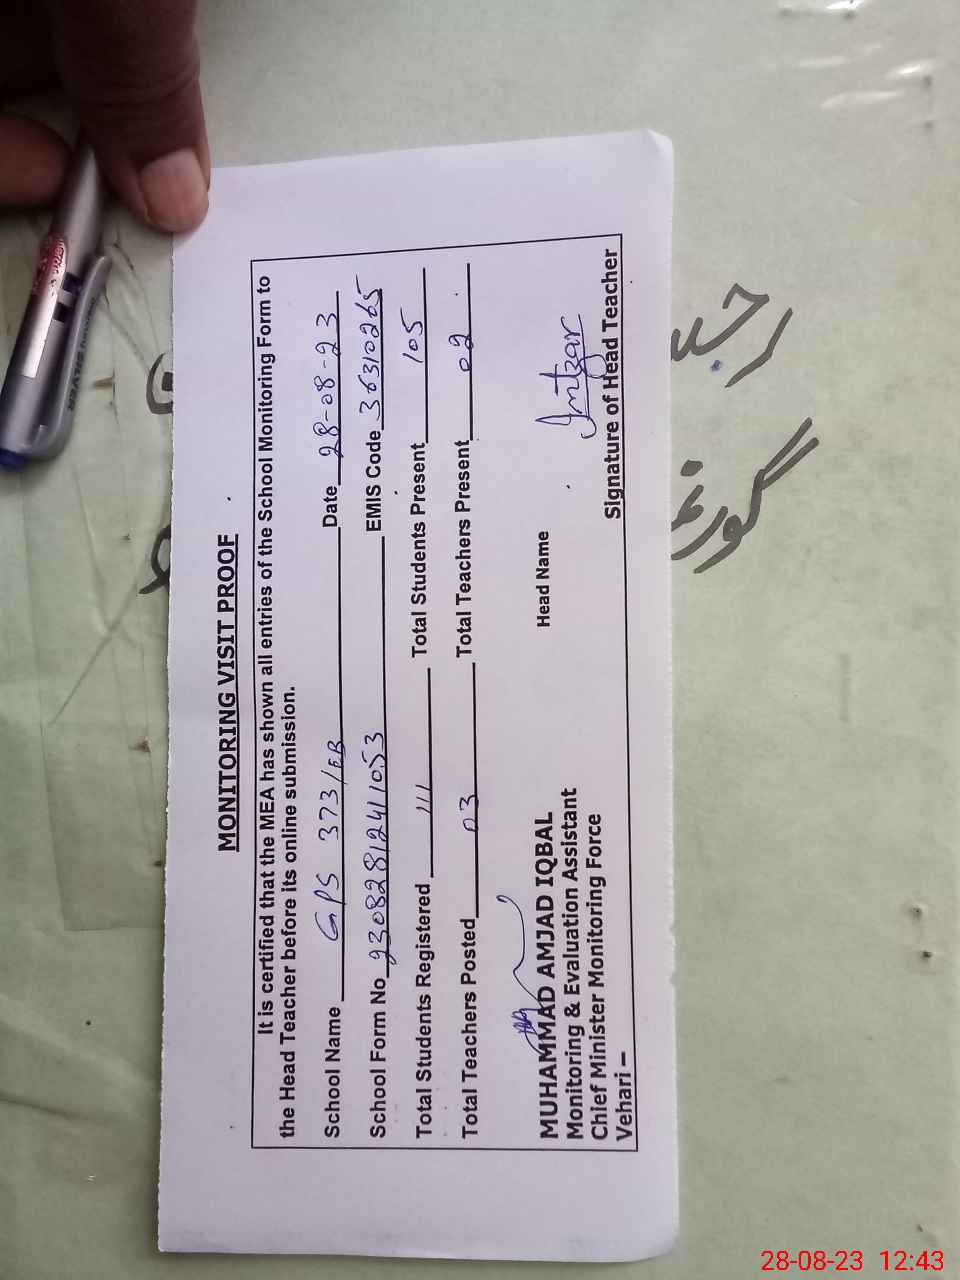 MONITORING VISIT PROOF
It is certified that the MEA has shown all entries of the School Monitoring Form to
the Head Teacher before its online submission.
School Name GPS 373/EB Date 28-08-23
School Form No 230828124111053 EMIS Code 36310265
Total Students Registered 111 Total Students Present 105
Total Teachers Posted 03 Total Teachers Present 02
MUHAMMAD AMJAD IQBAL Head Name
Monitoring & Evaluation Assistant
Chief Minister Monitoring Force
Vehari – Signature of Head Teacher
28-08-23 12:43